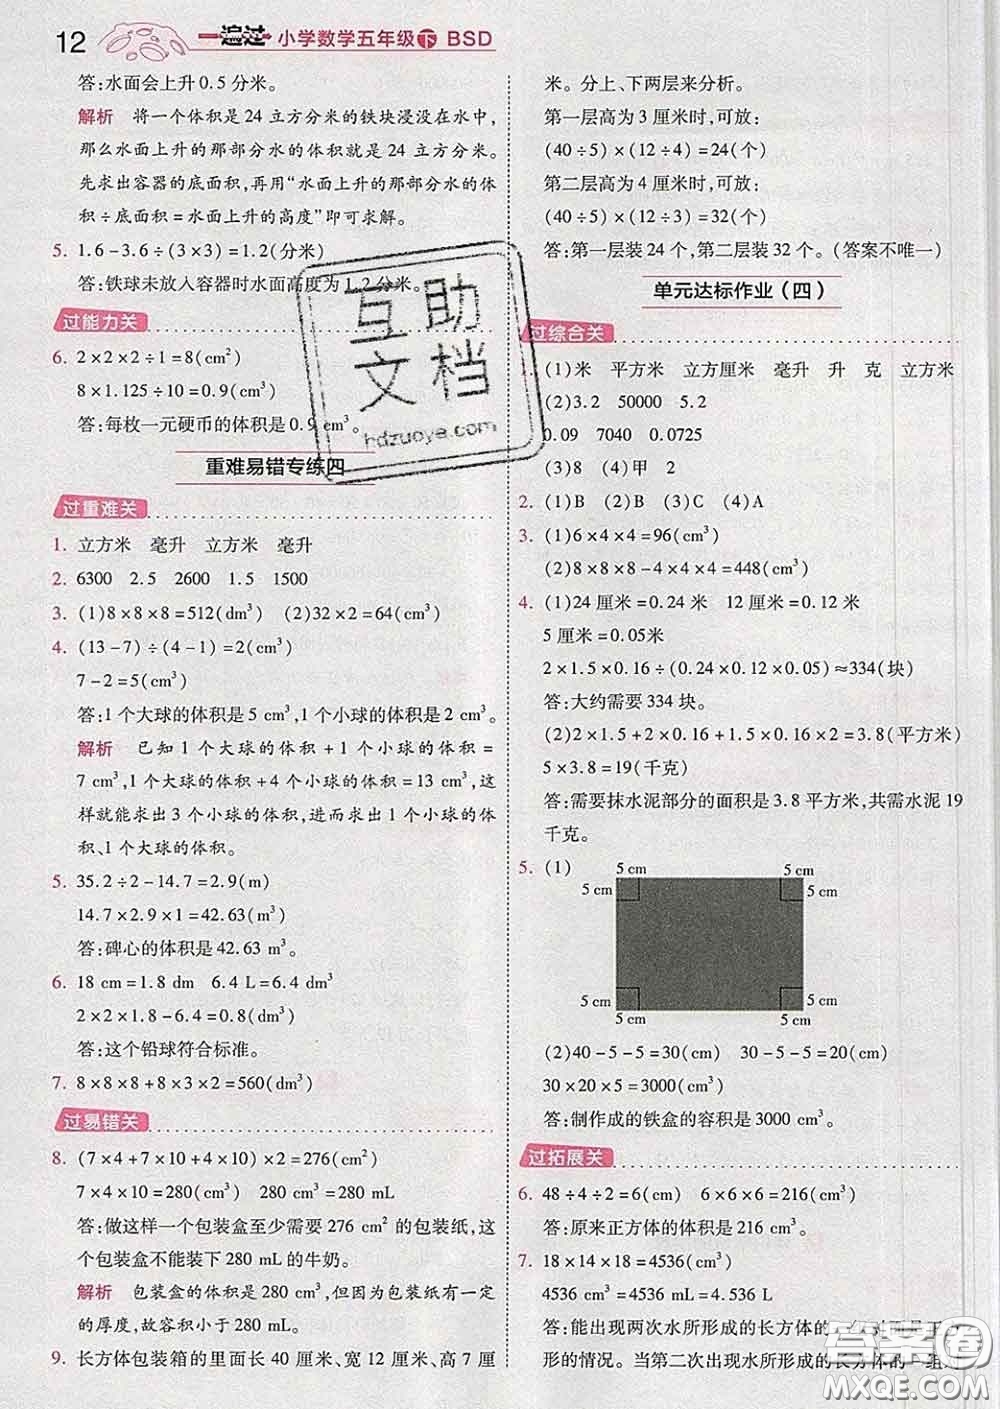 12 一遍过 小学数学五年级下 BSD
答:水面会上升0.5分米。
解析 将一个体积是24立方分米的铁块浸没在水中,
那么水面上升的那部分水的体积就是24立方分米。
先求出容器的底面积,再用“水面上升的那部分水的体
积÷底面积=水面上升的高度”即可求解。
5. 1.6-3.6÷(3×3)=1.2(分米)
答:铁球未放入容器时水面高度为1.2分米。
过能力关
6. 2×2×2÷1=8(cm²)
8×1.125÷10=0.9(cm³)
答:每枚一元硬币的体积是0.9 cm³。
重难易错专练四
过重难关
1. 立方米 毫升 立方米 毫升
2. 6300 2.5 2600 1.5 1500
3. (1)8×8×8=512(dm³) (2)32×2=64(cm³)
4. (13-7)÷(4-1)=2(cm³)
7-2=5(cm³)
答:1个大球的体积是5 cm³,1个小球的体积是2 cm³。
解析 已知1个大球的体积+1个小球的体积=
7 cm³,1个大球的体积+4个小球的体积=13 cm³,这
样就能求出3个小球的体积,进而求出1个小球的体
积、1个大球的体积。
5. 35.2÷2-14.7=2.9(m)
14.7×2.9×1=42.63(m³)
答:碑心的体积是42.63 m³。
6. 18 cm=1.8 dm 6.4 L=6.4 dm³
2×2×1.8-6.4=0.8(dm³)
答:这个铅球符合标准。
7. 8×8×8+8×3×2=560(dm³)
过易错关
8. (7×4+7×10+4×10)×2=276(cm²)
7×4×10=280(cm³) 280 cm³=280 mL
答:做这样一个包装盒至少需要276 cm²的包装纸,这
个包装盒不能装下280 mL的牛奶。
解析 包装盒的体积是280 cm³,但因为包装纸有一定
的厚度,故容积小于280 mL。
9. 长方体包装箱的里面长40厘米、宽12厘米、高7厘
米。分上、下两层来分析。
第一层高为3厘米时,可放:
(40÷5)×(12÷4)=24(个)
第二层高为4厘米时,可放:
(40÷5)×(12÷3)=32(个)
答:第一层装24个,第二层装32个。(答案不唯一)
单元达标作业(四)
过综合关
1. (1)米 平方米 立方厘米 毫升 升 克 立方米
(2)3.2 50000 5.2
0.09 7040 0.0725
(3)8 (4)甲 2
2. (1)B (2)B (3)C (4)A
3. (1)6×4×4=96(cm³)
(2)8×8×8-4×4×4=448(cm³)
4. (1)24厘米=0.24米 12厘米=0.12米
5厘米=0.05米
2×1.5×0.16÷(0.24×0.12×0.05)≈334(块)
答:大约需要334块。
(2)2×1.5+2×0.16+1.5×0.16×2=3.8(平方米)
5×3.8=19(千克)
答:需要抹水泥部分的面积是3.8平方米,共需水泥19
千克。
5. (1)
5 cm 5 cm
5 cm 5 cm
5 cm 5 cm
5 cm 5 cm
(2)40-5-5=30(cm) 30-5-5=20(cm)
30×20×5=3000(cm³)
答:制作成的铁盒的容积是3000 cm³。
过拓展关
6. 48÷4÷2=6(cm) 6×6×6=216(cm³)
答:原来正方体的体积是216 cm³。
7. 18×14×18=4536(cm³)
4536 cm³=4536 mL=4.536 L
答:能出现两次水所形成的长方体的
形的情况。当第二次出现水所形成的长方体的一组
互助文档
hdzuoye.com
答案圈
MXQE.COM